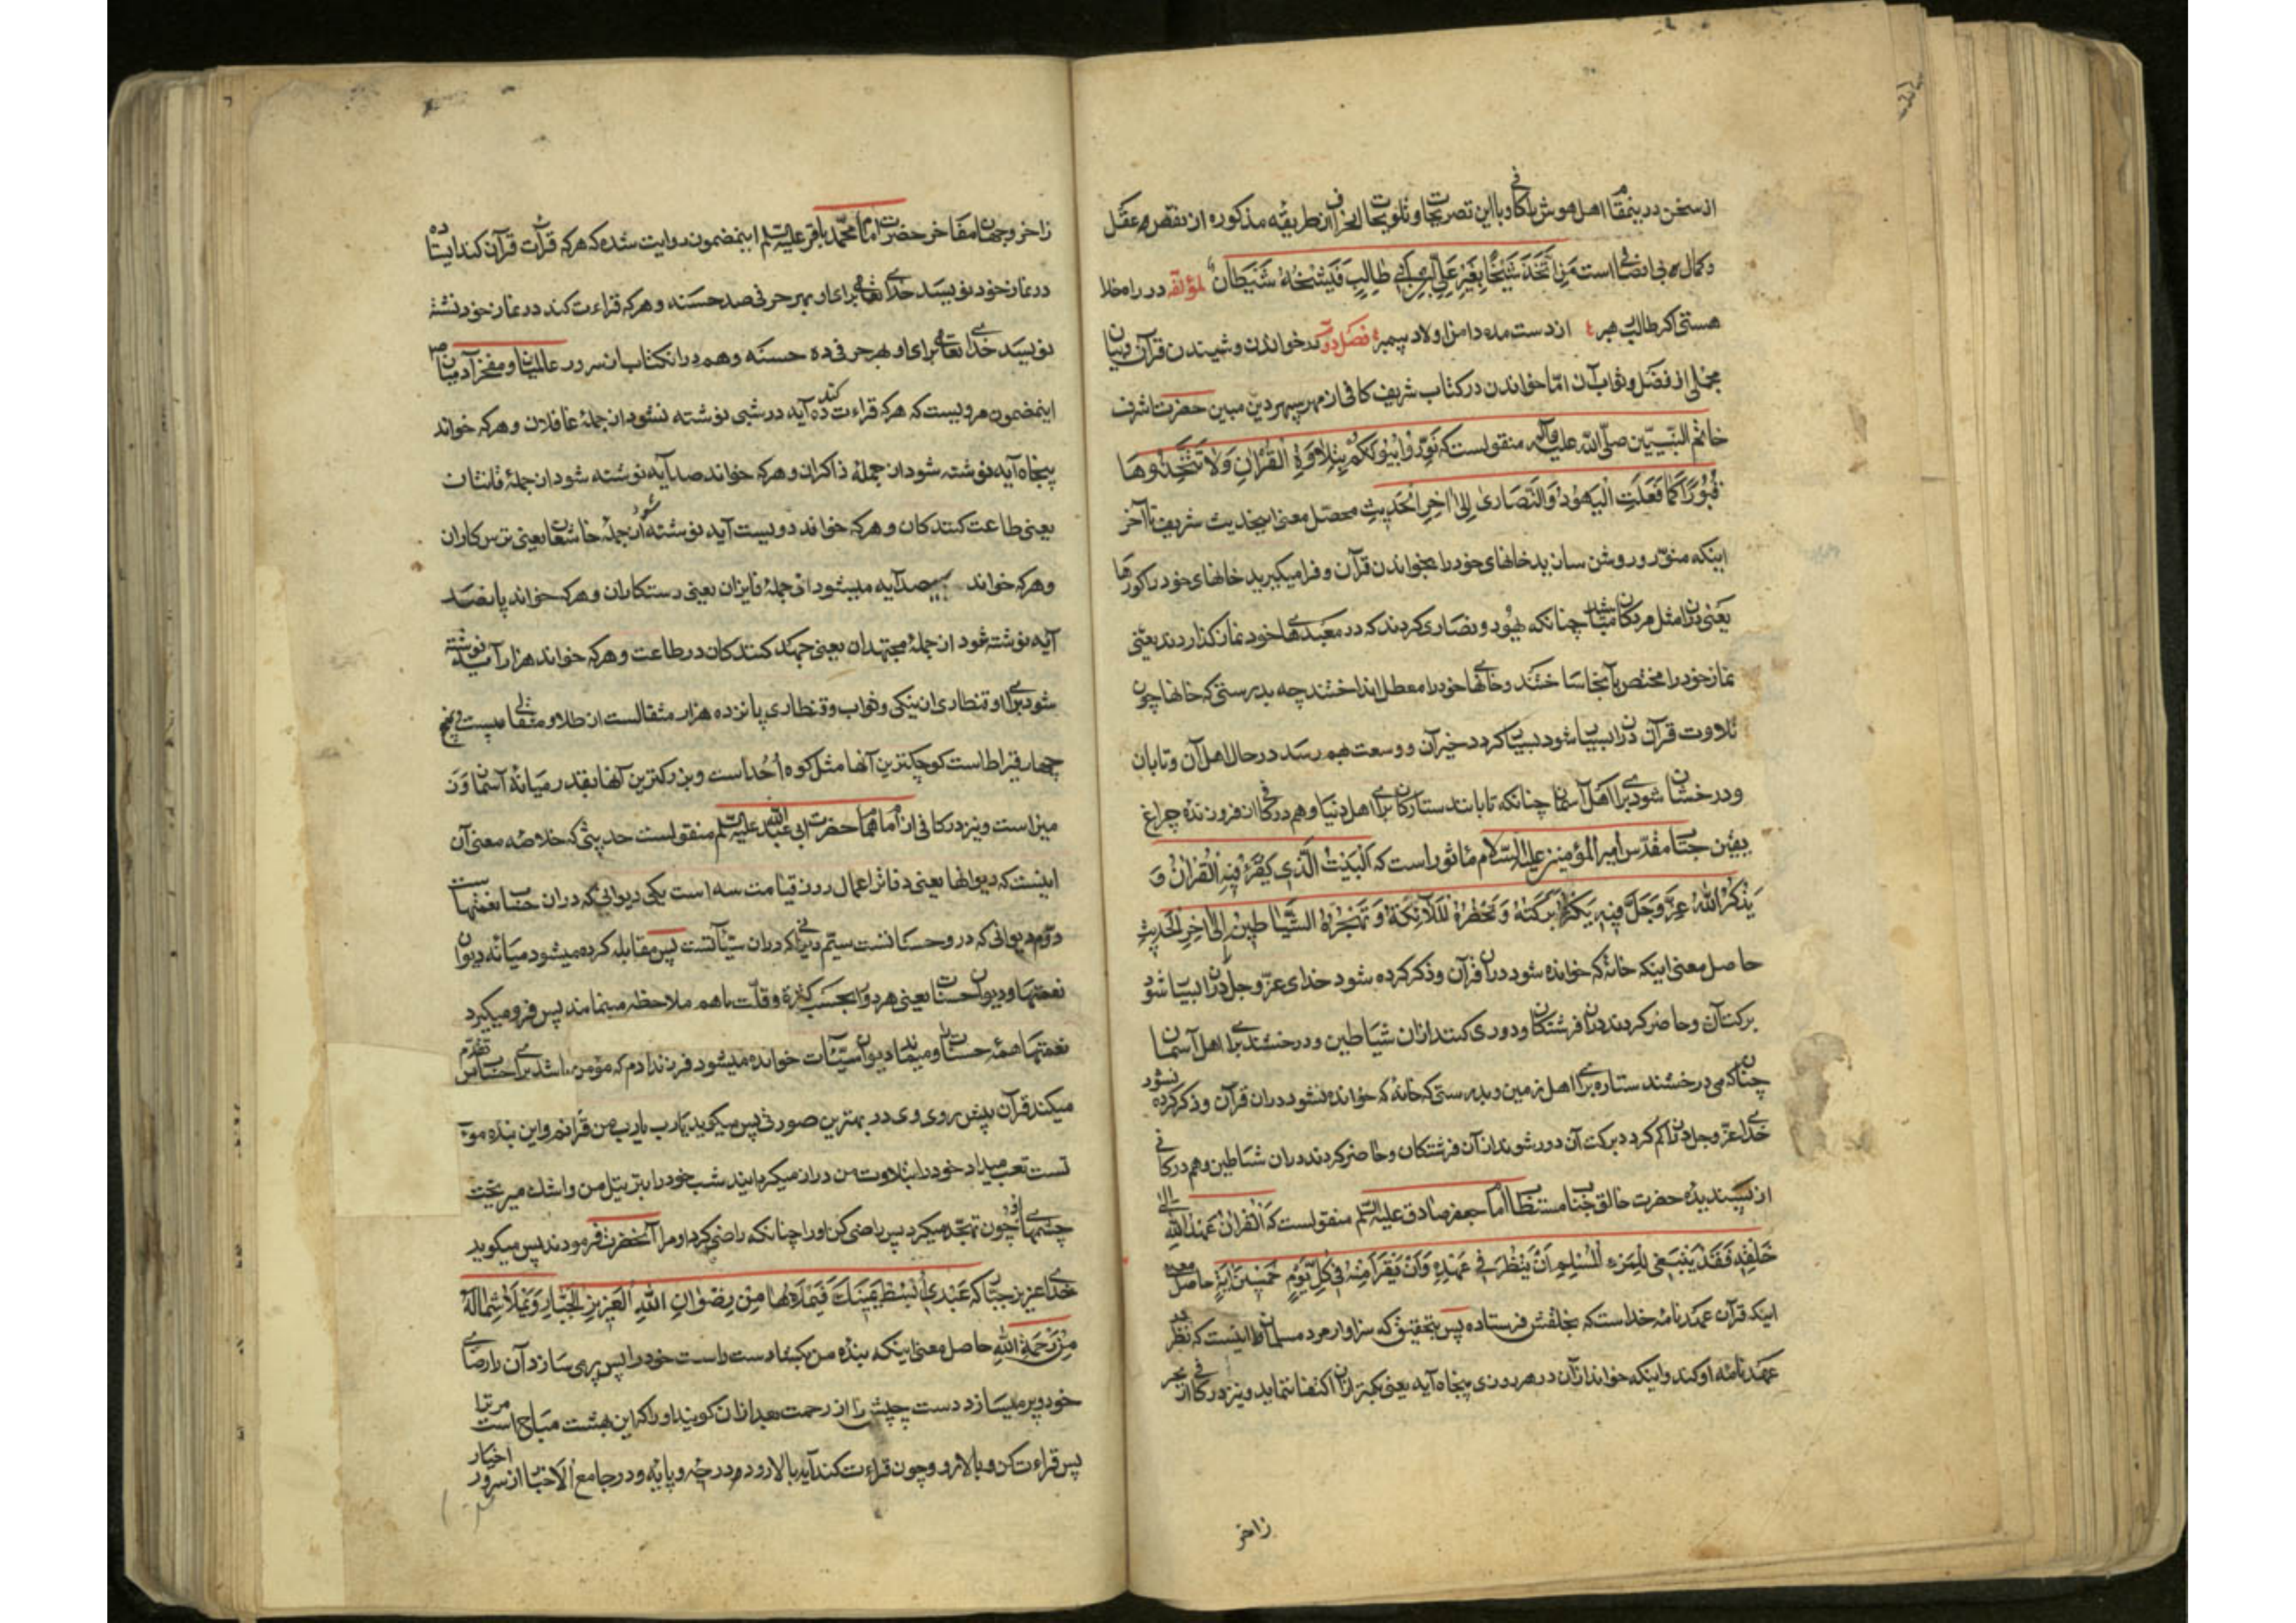 از سخن در بینمقام اهل هوش را کافی و با این تصریحات و تلویحات انحراف از طریقه مذکوره از نقص عقل
و کمال بی انصافی است مَنِ اتَّخَذَ شَیْخًا بِغَیْرِ عَلِیِّ بْنِ اَبِی طالِبٍ فَشَیْخُهُ شَیْطانٌ لمؤلفه در راه خدا
هستی اگر طالب هبر از دست مده دامن اولاد پیمبر فصل دوم در خواندن و شنیدن قرآن و بیان
مجملی از فضل و ثواب آن امّا خواندن در کتاب شریف کافی از مهر سپهر دین مبین حضرت اشرف
خاتم النبیّین صلّی الله علیه وآله منقولست که نَوِّرُوا بُیُوتَکُمْ بِتِلاوَةِ الْقُرْانِ وَلا تَتَّخِذُوها
قُبُورًا کَما فَعَلَتِ الْیَهُودُ وَالنَّصاری اِلی اخِرِ الْحَدیثِ محصّل معنی اینحدیث شریف تا آخر
اینکه منوّر و روشن سازید خانهای خود را بخواندن قرآن و فرا مگیرید خانهای خود را گورها
یعنی در آن مثل مردگان مباشید چنانکه یهود و نصاری کردند که در معبدهای خود نماز گذاردند یعنی
نماز خود را مختص بآنجا ساختند و خانهای خود را معطل انداختند چه بدرستی که خانها چون
تلاوت قرآن در آن بسیار شود بسیار گردد خیر آن و وسعت بهم رسد در حال اهل آن و تابان
و درخشان شود برای اهل آسمان چنانکه تابانند ستارگان برای اهل دنیا و هم در کافی از فروزنده چراغ
یقین جناب مقدّس امیر المؤمنین علیه السّلام ماثور است که اَلْبَیْتُ الَّذی یُقْرَءُ فیهِ الْقُرْانُ وَ
یُذْکَرُ اللهُ عَزَّ وَجَلَّ فیهِ یَکْثُرُ بَرَکَتُهُ وَ تَحْضُرُهُ الْمَلائِکَةُ وَ تَهْجُرُهُ الشَّیاطینُ اِلی اخِرِ الْحَدیثِ
حاصل معنی اینکه خانه که خوانده شود در آن قرآن و ذکر کرده شود خدای عزّ وجل در آن بسیار شود
برکت آن و حاضر گردند در آن فرشتگان و دوری کنند از آن شیاطین و درخشند برای اهل آسمان
چنانکه می درخشند ستاره برای اهل زمین و بدرستی که خانه که خوانده نشود در آن قرآن و ذکر کرده نشود
خدای عزّ وجل در آن کم گردد برکت آن دور شوند از آن فرشتگان و حاضر گردند در آن شیاطین و هم در کافی
از پسندیده حضرت خالق جناب مستطاب امام جعفر صادق علیه السّلم منقولست که اَلْقُرْانُ عَهْدُ اللهِ اِلی
خَلْقِهِ فَقَدْ یَنْبَغی لِلْمَرْءِ الْمُسْلِمِ اَنْ یَنْظُرَ فی عَهْدِهِ وَ اَنْ یَقْرَأَ مِنْهُ فی کُلِّ یَوْمٍ خَمْسینَ ایَةً حاصل معنی
اینکه قرآن عهدنامه خداست که بخلقش فرستاده پس بتحقیق که سزاوار مرد مسلمان را اینست که نظر در
عهدنامه او کند و اینکه خواند از آن در هر روزی پنجاه آیه یعنی بکمتر از آن اکتفا ننماید و نیز در کافی از بحر
زاخر
زاخر وجهان مفاخر حضرت امام محمّد باقر علیه السّلم اینمضمون روایت شده که هرکه قرائت قرآن کند ایستاده
در نماز خود نویسد خدای تعالی برای او بهر حرفی صد حسنه و هرکه قراءت کند در نماز خود نشسته
نویسد خدای تعالی برای او بهر حرفی ده حسنه و هم در آنکتاب از سرور عالمیان و مفخر آدمیان
اینمضمون مرویست که هرکه قراءت کند ده آیه در شبی نوشته نشود از جملهٔ غافلان و هرکه خواند
پنجاه آیه نوشته شود از جملهٔ ذاکران و هرکه خواند صد آیه نوشته شود از جملهٔ قانتان
یعنی طاعت کنندکان و هرکه خواند دویست آیه نوشته شود از جملهٔ خاشعان یعنی ترس کاران
و هرکه خواند سیصد آیه میشود از جملهٔ فایزان یعنی رستکاران و هرکه خواند پانصد
آیه نوشته شود از جملهٔ مجتهدان یعنی جهد کنندکان در طاعت و هرکه خواند هزار آیه نوشته
شود برای او قنطاری از نیکی و ثواب و قنطاری پانزده هزار مثقالست از طلا و مثقالی بیست و
چهار قیراط است کوچکترین آنها مثل کوه اُحُد است و بزرکترین آنها بقدر میانهٔ آسمان و ز
مین است و نیز در کافی از امام همام حضرت ابی عبد الله علیه السّلم منقولست حدیثی که خلاصه معنی آن
اینست که دیوانها یعنی دفاتر اعمال روز قیامت سه است یکی دیوانی که در آن حساب نعمتهاست
دوّم دیوانی که در و حسناتست سیّم دیوانی که در آن سیّئاتست پس مقابله کرده میشود میانه دیوان
نعمتها و دیوان حسنات یعنی هر دو را بحسب کثرة و قلّت با هم ملاحظه مینمایند پس فرو میگیرد
نعمتها همهٔ حسنات را و میماند دیوان سیّئات خوانده میشود فرزند آدم که مؤمن باشد برای حساب پس تقدّم
میکند قرآن پیش روی وی در بهترین صورتی پس میکوید یارب یارب من قرانم و این بنده مومن
تست تعب میداد خود را بتلاوت من دراز میکرد شب خود را بترتیل من و اشک میریخت
چشمهای او چون تهجّد میکرد پس راضی کن او را چنانکه راضی کرد او مرا آنحضرت فرمودند پس میکوید
خدای عزیز جبّار که عَبْدی اُبْسُطْ یَمینَکَ فَیَمْلَاُها مِنْ رِضْوانِ اللهِ الْعَزیزِ الْجَبّارِ وَ یَمْلَاُ شِمالَهُ
مِنْ رَحْمَةِ اللهِ حاصل معنی اینکه بنده من بکشا دست راست خود را پس پر می سازد آن را رضای
خود و پر میسازد دست چپش را از رحمت بعد از آن کویند او را که این بهشت مباح است مر ترا
پس قراءت کن و بالا رو و چون قراءت کند آیه بالا رود درجه و پایه و در جامع الاخبار از سرور اخیار